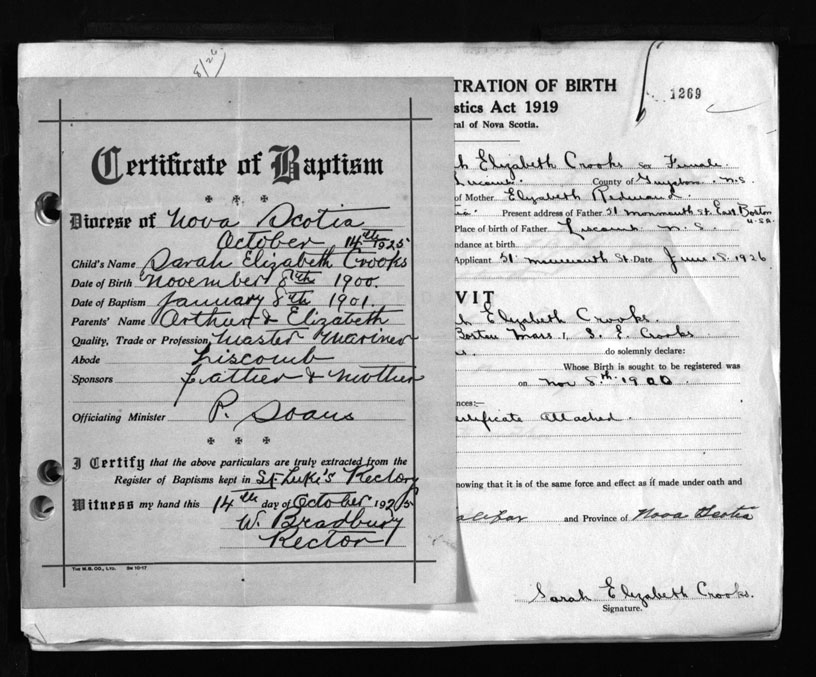 8/26
Certificate of Baptism
Diocese of Nova Scotia
October 14th 1925
Child's Name Sarah Elizabeth Crooks
Date of Birth November 8th 1900.
Date of Baptism January 8th 1901.
Parents' Name Arthur & Elizabeth
Quality, Trade or Profession, Master Mariner
Abode Liscomb
Sponsors Father & Mother
Officiating Minister P. Soans
I Certify that the above particulars are truly extracted from the
Register of Baptisms kept in St. Luke's Rectory
Witness my hand this 14th day of October 1925
W. Bradbury
Rector
The M.B. Co., Ltd. 5M 10-17
TRATION OF BIRTH
1269
stics Act 1919
ral of Nova Scotia.
h Elizabeth Crooks Sex Female.
Liscomb. County of Guysboro. N.S.
of Mother Elizabeth Redmond.
tia. Present address of Father 51 Monmouth St. East Boston
U.S.A.
Place of birth of Father Liscomb N.S.
ndance at birth
Applicant 51 Monmouth St. Date June 8. 1926
VIT
h Elizabeth Crooks.
Boston Mass. I, S. E. Crooks
do solemnly declare:
Whose Birth is sought to be registered was
on Nov 8th 1900
nces:—
ertificate attached.
nowing that it is of the same force and effect as if made under oath and
alifax and Province of Nova Scotia
Sarah Elizabeth Crooks.
Signature.